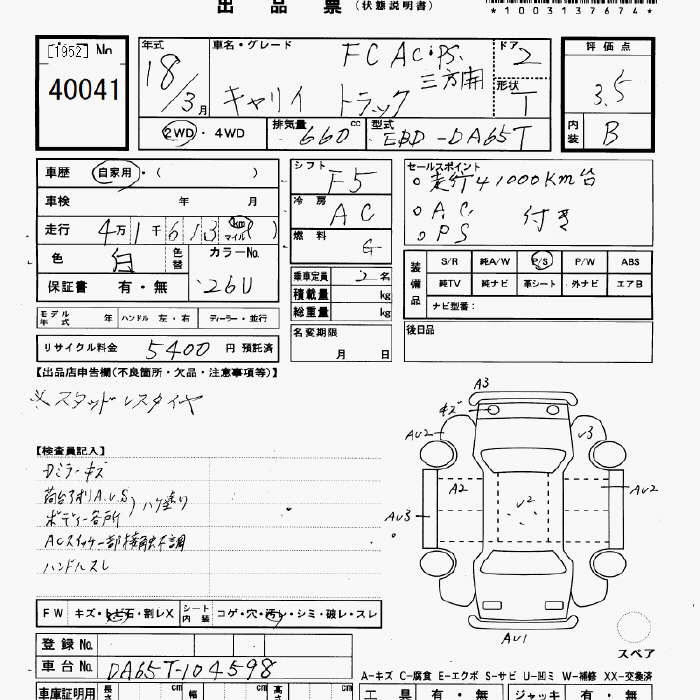 出 品 票 (状態説明書)
*1003137674*
[1952] No
40041
年式 18/3月
車名・グレード FC AC・PS.
三方開
キャリイ トラック
ドア 2
形状 T
評価点 3.5
内装 B
2WD ・ 4WD 排気量 660 cc 型式 EBD-DA65T
車歴 自家用 ・( )
車検 年 月
走行 4万1千613 km マイル ( )
色 白 色替 カラーNo. 26U
保証書 有・無
シフト F5
冷房 AC
燃料 G
乗車定員 2名
積載量 kg
総重量 kg
セールスポイント
○走行41000Km台
○AC.
○PS 付き
装備品 S/R 純A/W P/S P/W ABS
純TV 純ナビ 革シート 外ナビ エアB
ナビ型番:
モデル年式 年 ハンドル 左・右 ディーラー・並行
名変期限 月 日
後日品
リサイクル料金 5400 円 預託済
【出品店申告欄(不良箇所・欠品・注意事項等)】
※スタッドレスタイヤ
【検査員記入】
Dミラーキズ
荷台アオリA.U.S
ボディー各所 )ハケ塗り
ACスイッチ一部接触不調
ハンドルスレ
A3
キズ
AU2
U3
A2
U2
AU2
AU3
AU1
スペア
FW キズ・トビ石・割レX シート内装 コゲ・穴・汚レ・シミ・破レ・スレ
登録No.
車台No. DA65T-104598
A-キズ C-腐食 E-エクボ S-サビ U-凹ミ W-補修 XX-交換済
車庫証明用 長さ cm 幅 cm 高さ cm
工具 有・無 ジャッキ 有・無